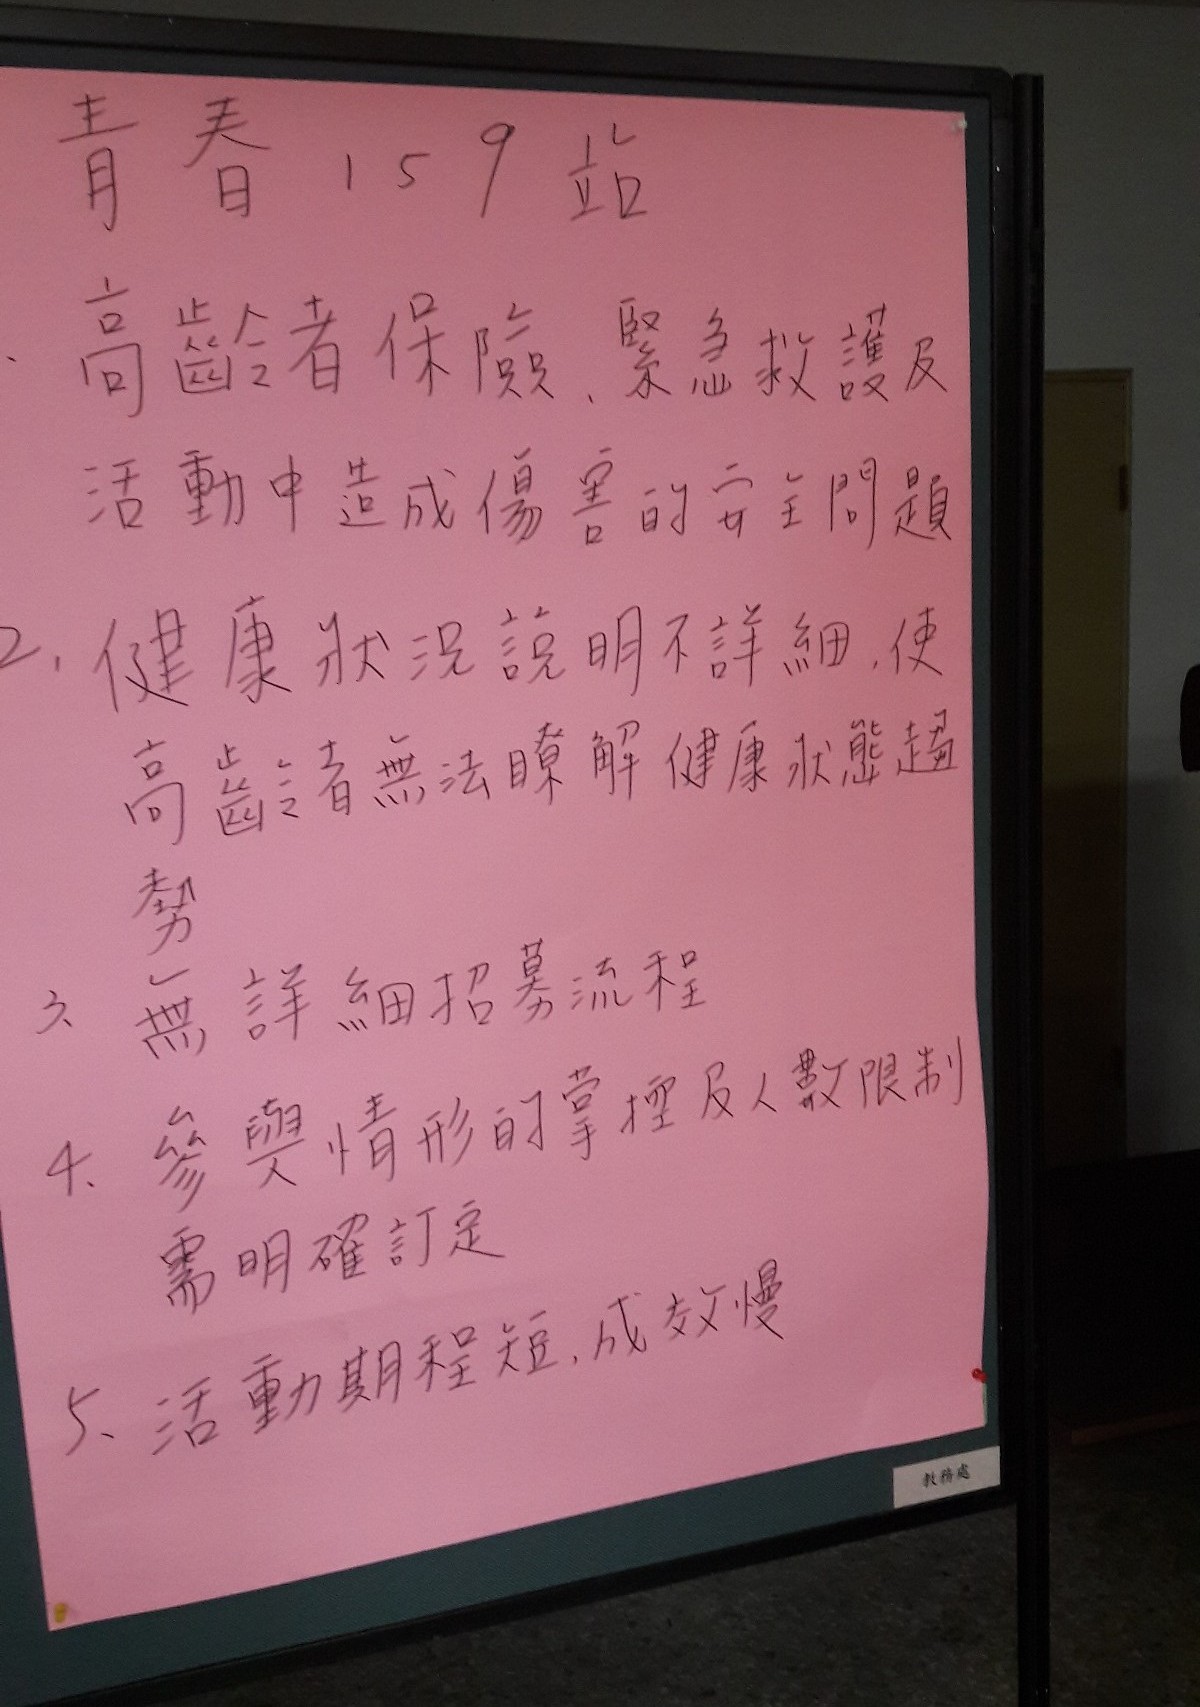 青春159站
、高齡者保險、緊急救護及
活動中造成傷害的安全問題
2、健康狀況說明不詳細,使
高齡者無法瞭解健康狀態趨
勢
3、無詳細招募流程
4、參與情形的掌控及人數限制
需明確訂定
5、活動期程短,成效慢
教務處